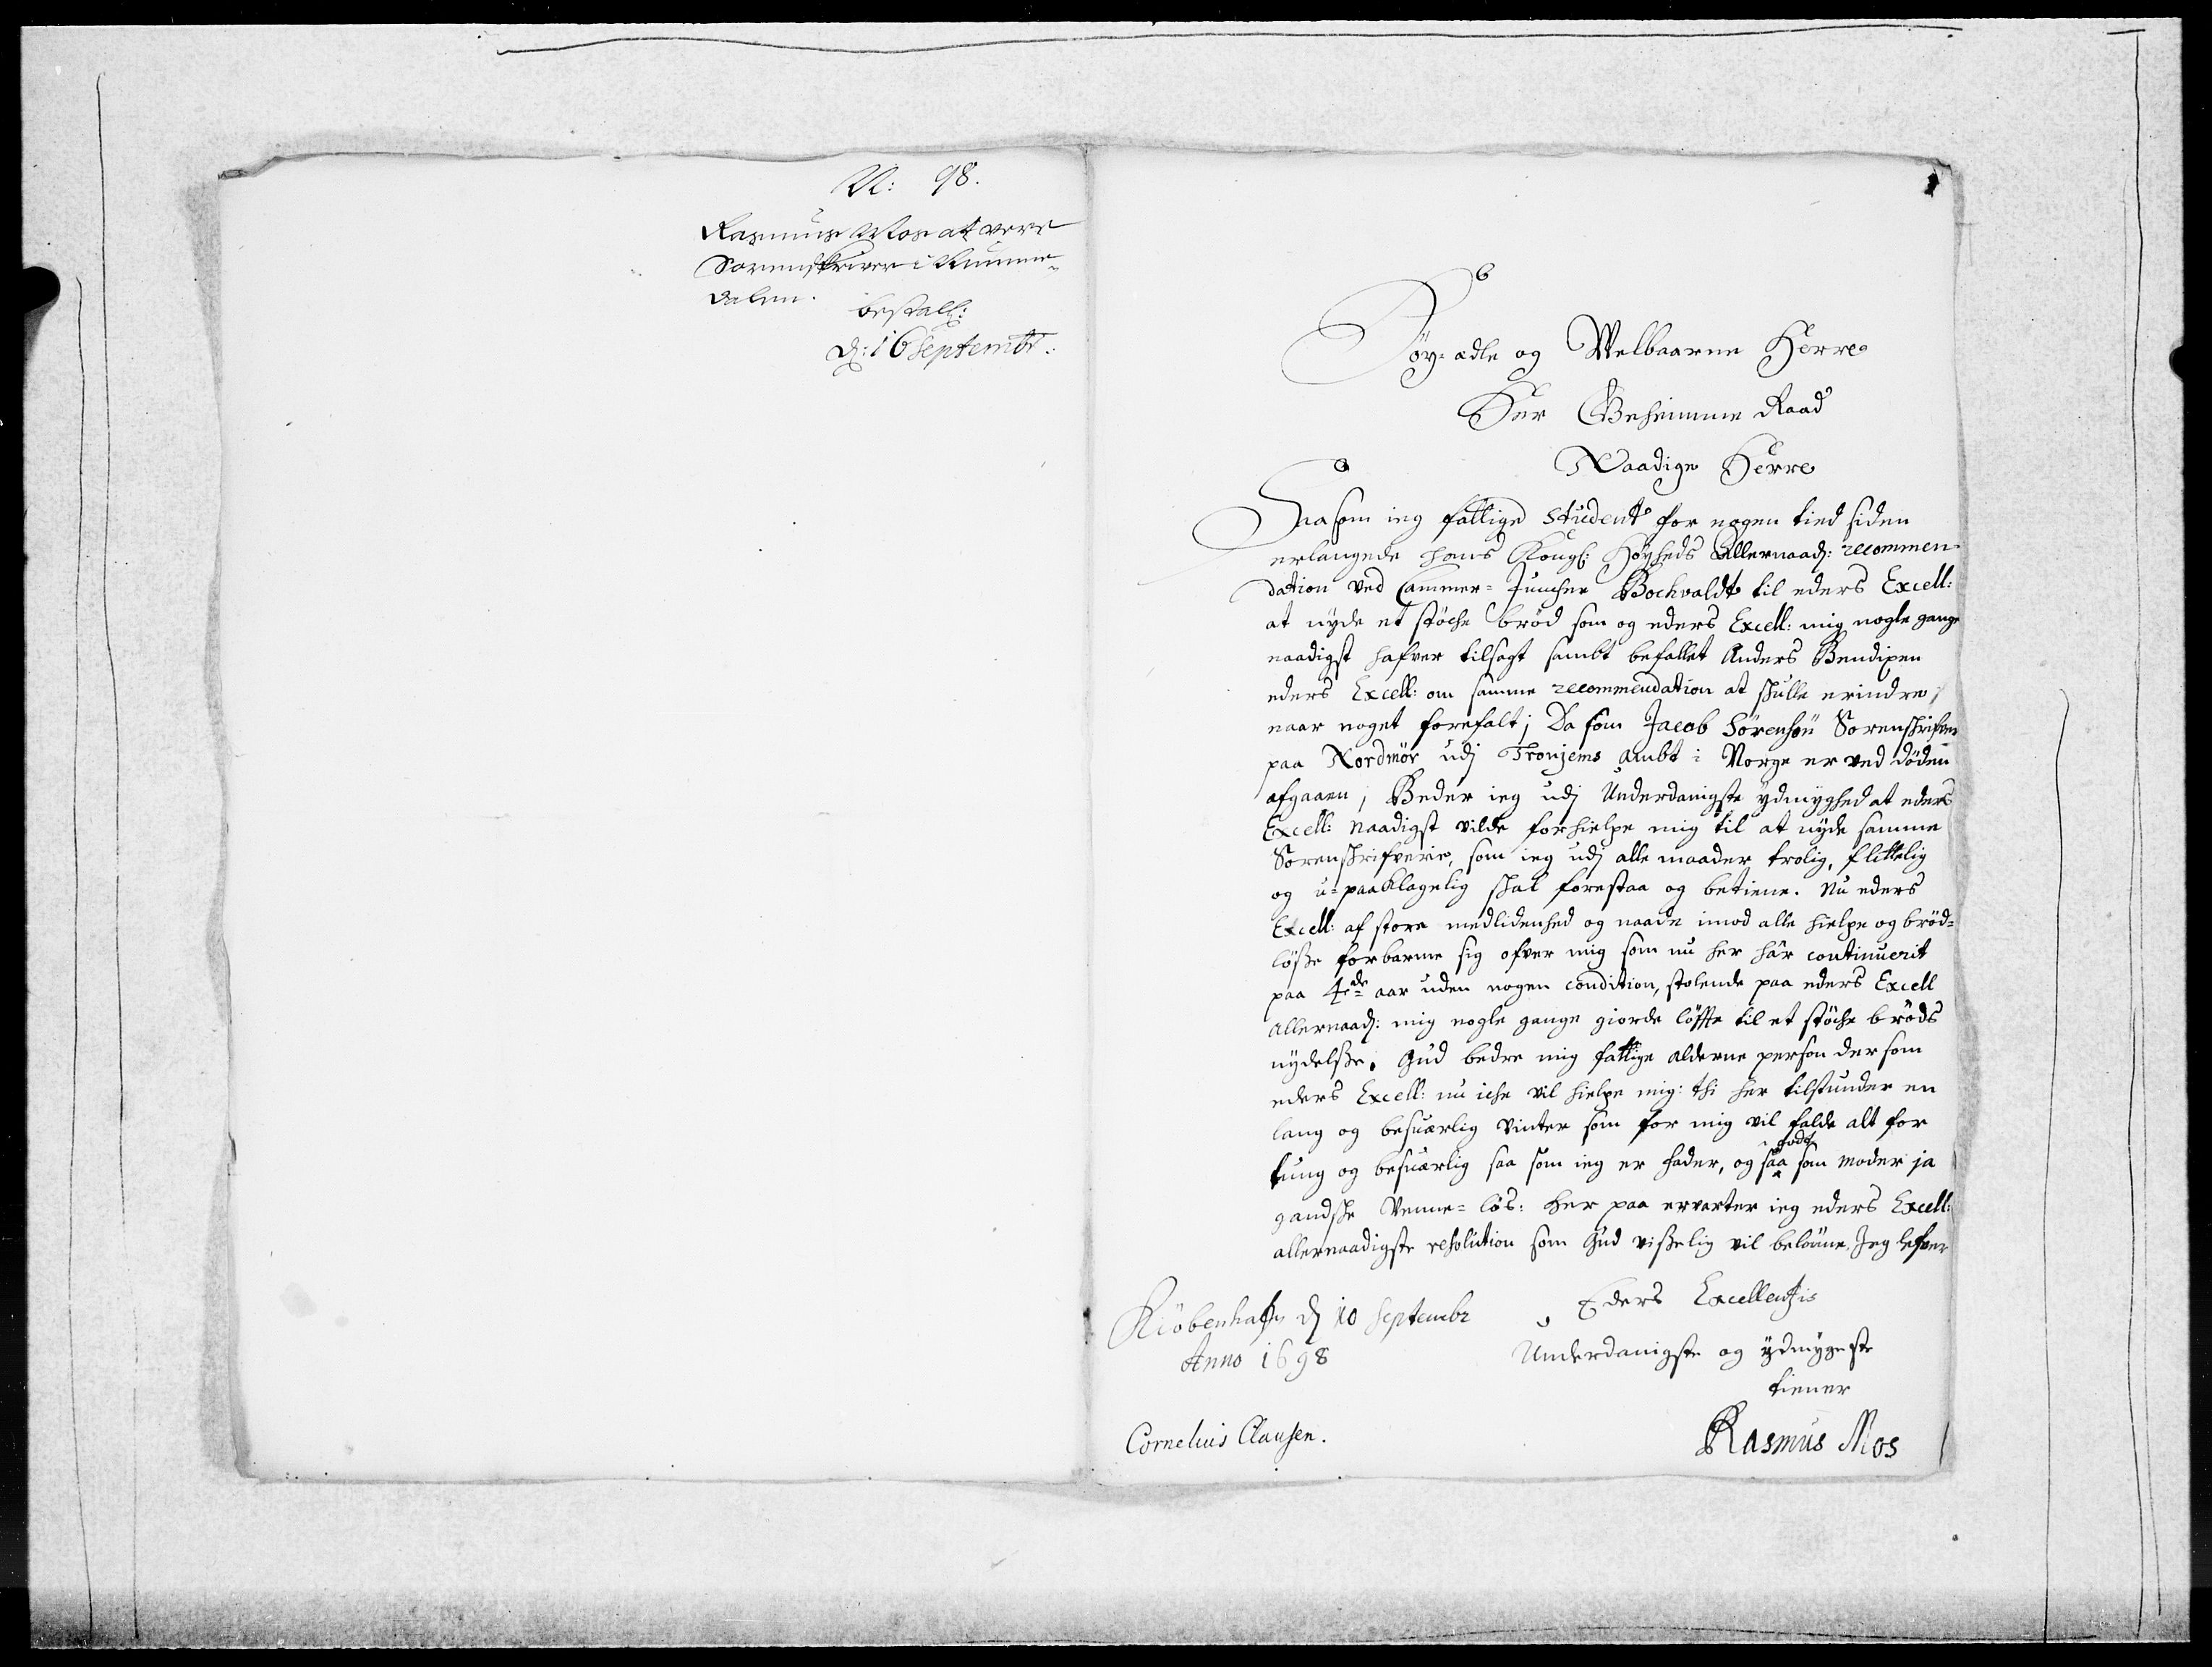 N: 98.
Rasmus Mos at vere
Sorenskriver i Numme-
dalen.
bestall:
d: 16 Septembr:
Høy-ædle og Welbaarne Herre
Her Geheimme Raad
Naadige Herre
Saasom ieg fattige Student for nogen tied siden
erlangede hans Kongl: Høyheds Allernaad: recommen-
dation ved Cammer-Juncher Bochvaldt til eders Excell:
at nyde et støche brød som og eders Excell: mig nogle gange
naadigst hafver tilsagt sambt befallet Anders Bendixen
eders Excell: om samme recommendation at skulle erindre,
naar noget forefalt; Da som Jacob Sørensøn Sorenskrifver
paa Nordmør udj Tronjems Ambt i Norge er ved døden
afgaaen, Beder ieg udj Underdanigste ydmyghed at eders
Excell: Naadigst vilde forhielpe mig til at nyde samme
Sorenskrifverie, som ieg udj alle maader trolig, flittelig
og u-paaklagelig skal forestaa og betiene. Nu eders
Excell: af store medlidenhed og naade imod alle hielpe og brød-
løsse forbarme sig ofver mig som nu her hâr continuerit
paa 4de aar uden nogen condition, stolende paa eders Excell
Allernaad: mig nogle gange giorde løffte til et støche brøds
nydelsse. Gud bedre mig fattige alderne person dersom
eders Excell: nu iche vil hielpe mig: thi her tilstunder en
lang og besuærlig vinter som for mig vil falde alt for
tung og besuærlig saa som ieg er fader, og saa godt som moder ja
gandske Venne-løs: her paa ervarter ieg eders Excell:
allernaadigste resolution som Gud visselig vil belønne. Jeg lefver
Eders Excellentzis
Kiöbenhafn d 10 Septembr
Underdanigste og ydmygeste
Anno 1698
tiener
Cornelius Clausen.
Rasmus Mos